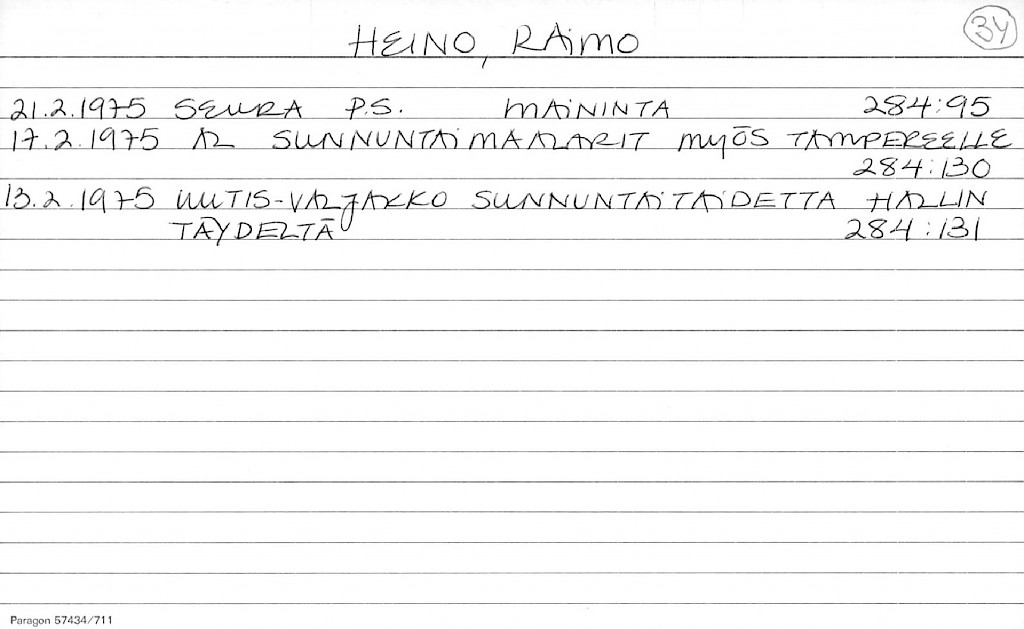 HEINO, RAIMO
34
21.2.1975 SEURA P.S. MAININTA 284:95
17.2.1975 AL SUNNUNTAIMAALARIT MYÖS TAMPEREELLE
284:130
13.2.1975 UUTIS-VALJAKKO SUNNUNTAITAIDETTA HALLIN
TÄYDELTÄ 284:131
Paragon 57434/711